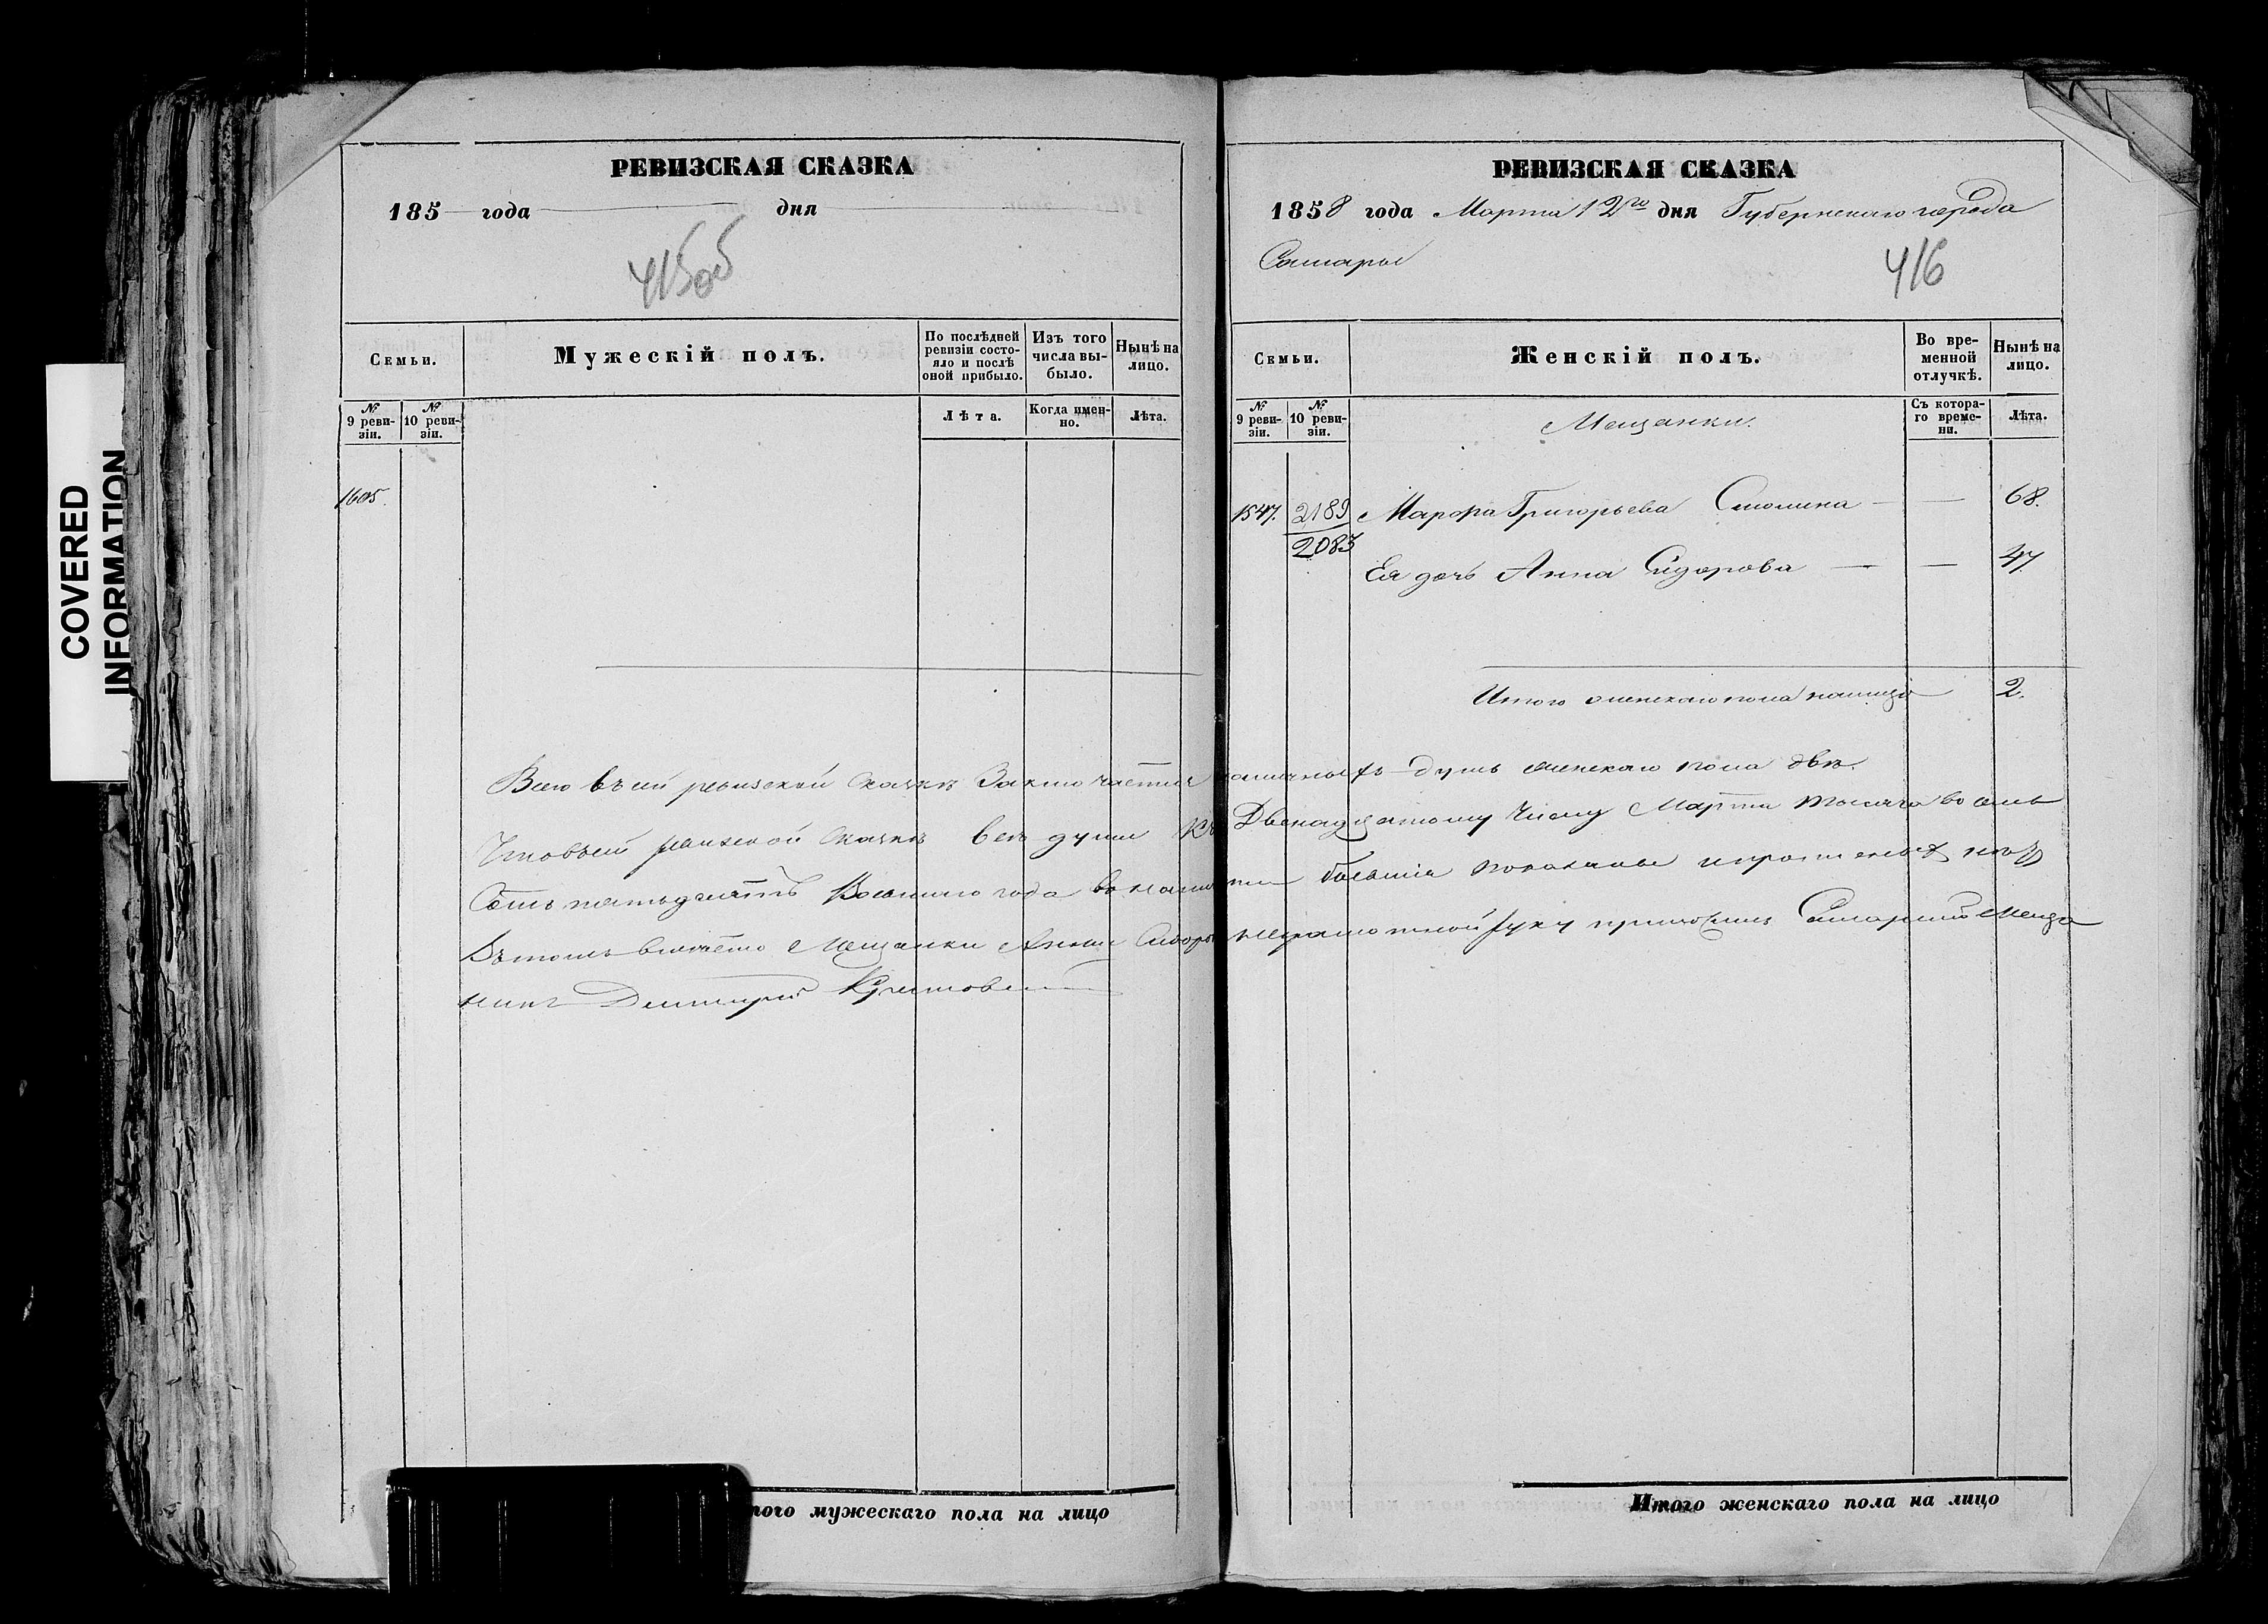 COVERED
INFORMATION
РЕВИЗСКАЯ СКАЗКА
185 года дня
415об
Семьи.
Мужескій полъ.
По послѣдней ревизіи состояло и послѣ оной прибыло.
Изъ того числа выбыло.
Нынѣ на лицо.
№ 9 ревизіи.
№ 10 ревизіи.
Лѣта.
Когда именно.
Лѣта.
1605.
РЕВИЗСКАЯ СКАЗКА
1858 года Марта 12го дня Губернскаго города
Самары
416
Семьи.
Женскій полъ.
Во временной отлучкѣ.
Нынѣ на лицо.
№ 9 ревизіи.
№ 10 ревизіи.
Мещанки.
Съ котораго времени.
Лѣта.
1547. 2189 Марфа Григорьева — — 68.
2083
Ея дочь Анна Сидорова — — 47
Итого женскаго пола налицо 2.
Всего въ сей ревизской сказкѣ заключается наличныхъ душъ женскаго пола двѣ.
Что въ сей ревизской сказкѣ все души къ Двенадцатому числу Марта тысяча восемь
сотъ пятьдесятъ восьмого года показаны и
въ томъ вместо Мещанки Анны Сидоро неграмотной руку приложилъ Самарской Меща
нинъ Дмитрий
того мужескаго пола на лицо
Итого женскаго пола на лицо